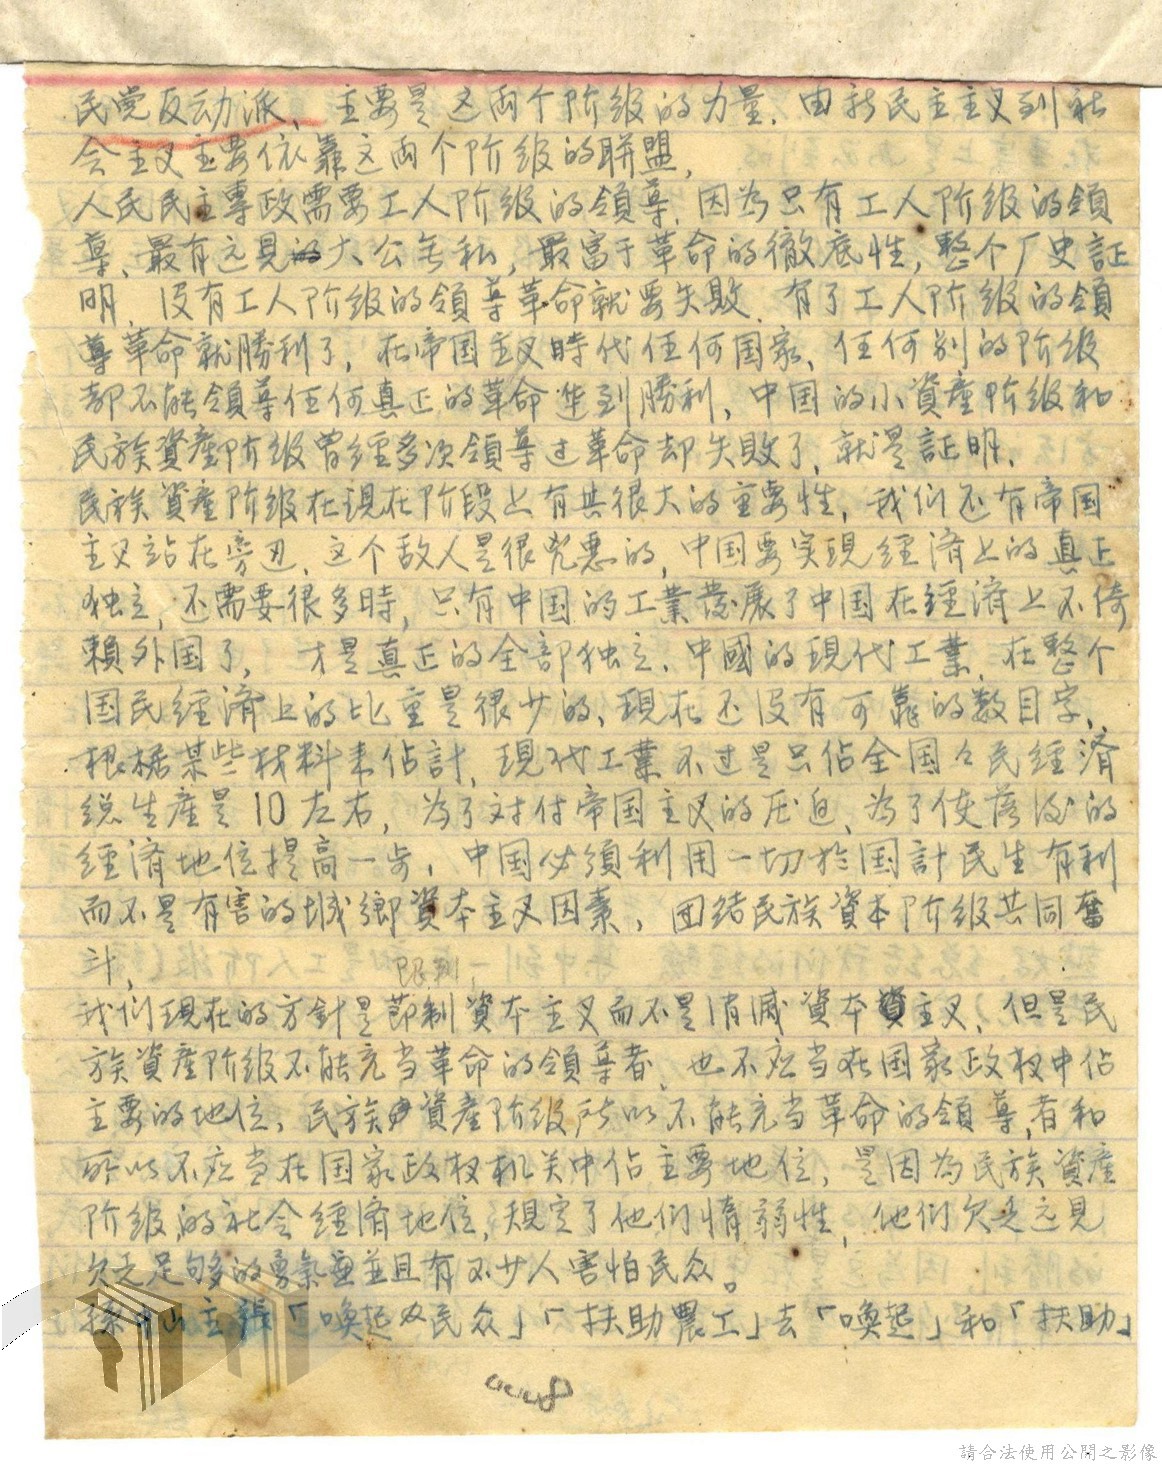 民党反动派、主要是这两个阶级的力量．由新民主主义到社
会主义主要依靠这两个阶级的联盟，
人民民主專政需要工人阶级的領導，因為只有工人阶级的領
導、最有远见的大公无私，最富于革命的徹底性，整个厂史証
明，没有工人阶级的領導革命就要失敗．有了工人阶级的領
導革命就勝利了，在帝国主义時代任何国家、任何别的阶级
都不能領導任何真正的革命達到勝利，中国的小資產阶级和
民族資產阶级曾經多次領導过革命却失敗了，就是証明．
民族資產阶级在現在阶段上有其很大的重要性，我们还有帝国
主义站在旁边．这个敌人是很兇悪的，中国要实現經済上的真正
独立，还需要很多時，只有中国的工業發展了中国在經済上不倚
賴外国了，才是真正的全部独立．中國的現代工業，在整个
国民經済上的比重是很少的、現在还没有可靠的数目字、
根据某些材料来估計，現代工業不过是只佔全国々民經済
総生産是10左右，為了対付帝国主义的压迫、為了使落後的
經済地位提高一步，中国必須利用一切於国計民生有利
而不是有害的城鄉資本主义因素，团结民族資本阶级共同奮
斗，
限制，
我们現在的方針是節制資本主义而不是消滅資本主义、但是民
族資產阶级不能充当革命的領導者，也不应当在国家政权中佔
主要的地位，民族資產阶级所以不能充当革命的領導，者和
所以不应当在国家政权机关中佔主要地位，是因為民族資產
阶级的社会經済地位，規定了他们惰弱性，他们欠乏远見
欠乏足够的勇氣並且有不少人害怕民众。
孫中山主張「喚起民众」「扶助農工」去「喚起」和「扶助」
0008
請合法使用公開之影像